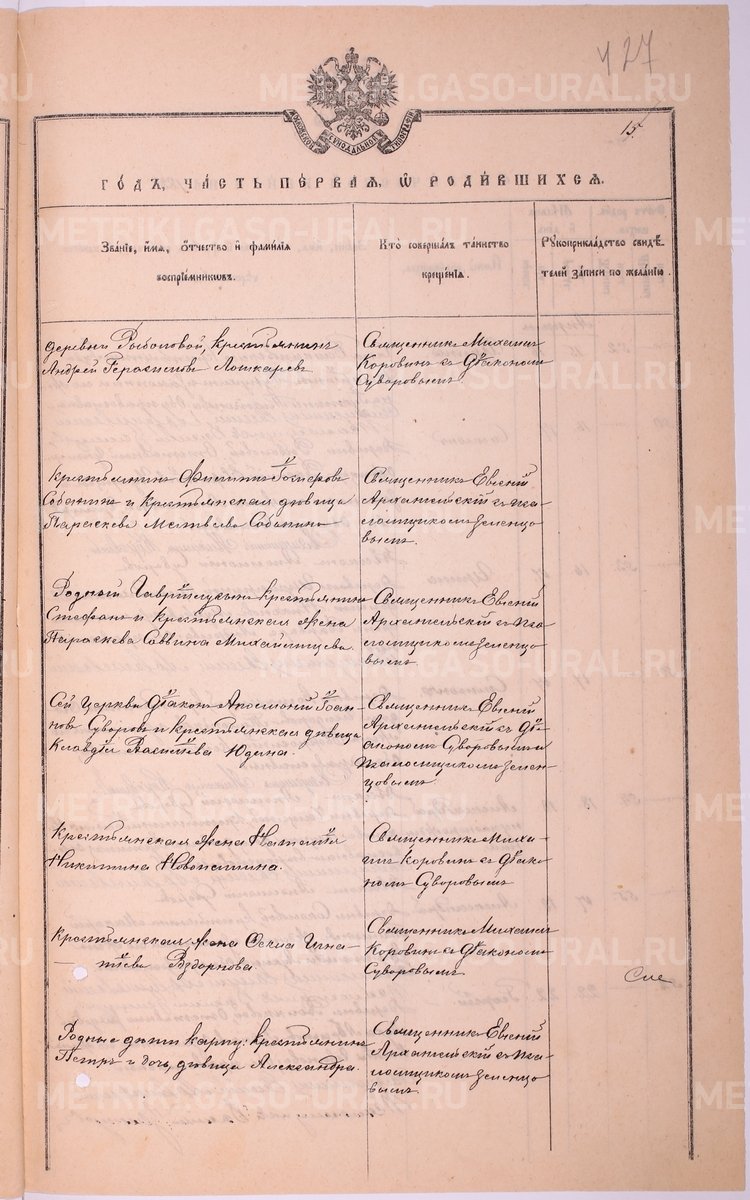 427
15
МОСКОВСКОЙ СѴНОДАЛЬНОЙ ТИПОГРАФІИ
ГОДЪ, ЧАСТЬ ПЕРВАЯ, Ѿ РОДИВШИХСЯ.
Званіе, имя, отчество и фамилія
воспріемниковъ.
Кто совершалъ таинство
крещенія.
Рукоприкладство свидѣ-
телей записи по желанію.
деревни Рыболовой, крестьянинъ
Андрей Герасимовъ Лошкаревъ
Священникъ Михаилъ
Коровинъ съ Діакономъ
Суворовымъ
крестьянинъ Филиппъ
Собанинъ и крестьянская дѣвица
Параскева Матвѣева Собанина
Священникъ Евгеній
Архангельскій съ пса-
ломщикомъ Зеленцо
вымъ.
Родной крестьянинъ
Стефанъ и крестьянская жена
Параскева Саввина Михайлищева.
Священникъ Евгеній
Архангельскій съ пса-
ломщикомъ Зеленцо
вымъ.
Сей церкви Діаконъ Аполлоній Іоан-
новъ Суворовъ и крестьянская дѣвица
Клавдія Юдина.
Священникъ Евгеній
Архангельскій съ Ді-
акономъ Суворовымъ и
псаломщикомъ Зелен-
цовымъ.
Крестьянская жена Наталія
Никитина Новопашина.
Священникъ Миха-
илъ Коровинъ съ Діако-
номъ Суворовымъ
крестьянская жена Игна-
тіева Вздорнова.
Священникъ Михаилъ
Коровинъ съ Діакономъ
Суворовымъ.
Родные дѣти крестьянинъ
Петръ и дочь, дѣвица Александра.
Священникъ Евгеній
Архангельскій съ пса-
ломщикомъ Зеленцо
вымъ.
METRIKI.GASO-URAL.RU